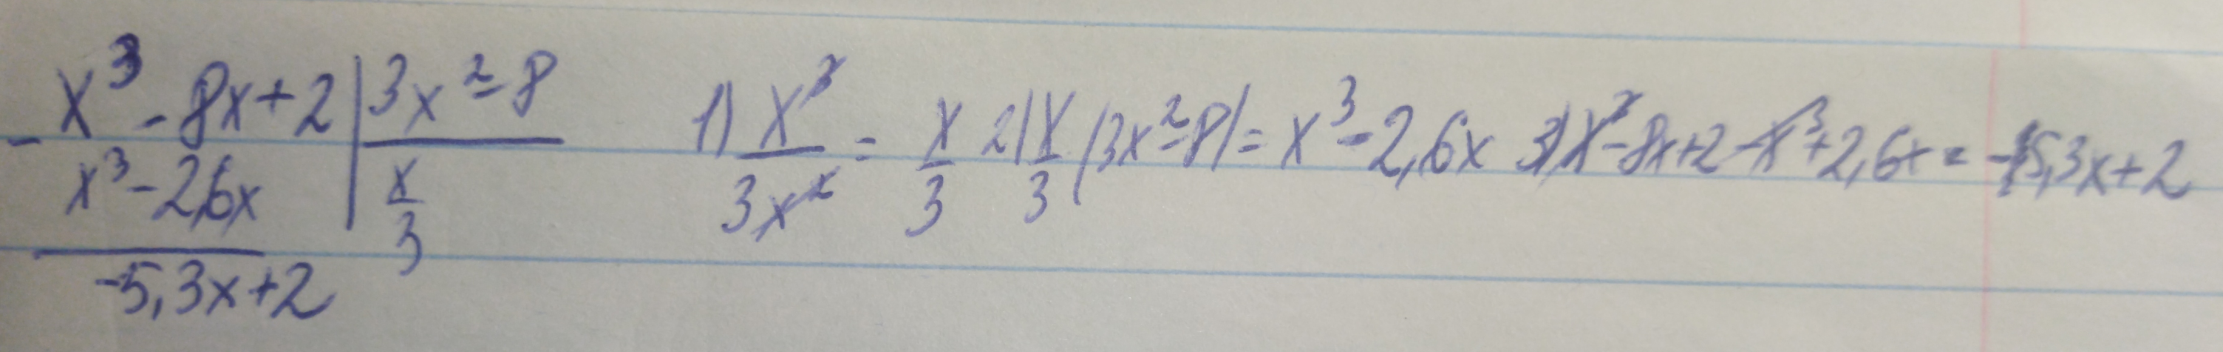 x³ - 8x + 2 | 3x² - 8
- x³ - 2,6x | x/3
-5,3x + 2
1) x³/3x² = x/3 2) x/3 (3x² - 8) = x³ - 2,6x 3) x³ - 8x + 2 - x³ + 2,6x = -5,3x + 2